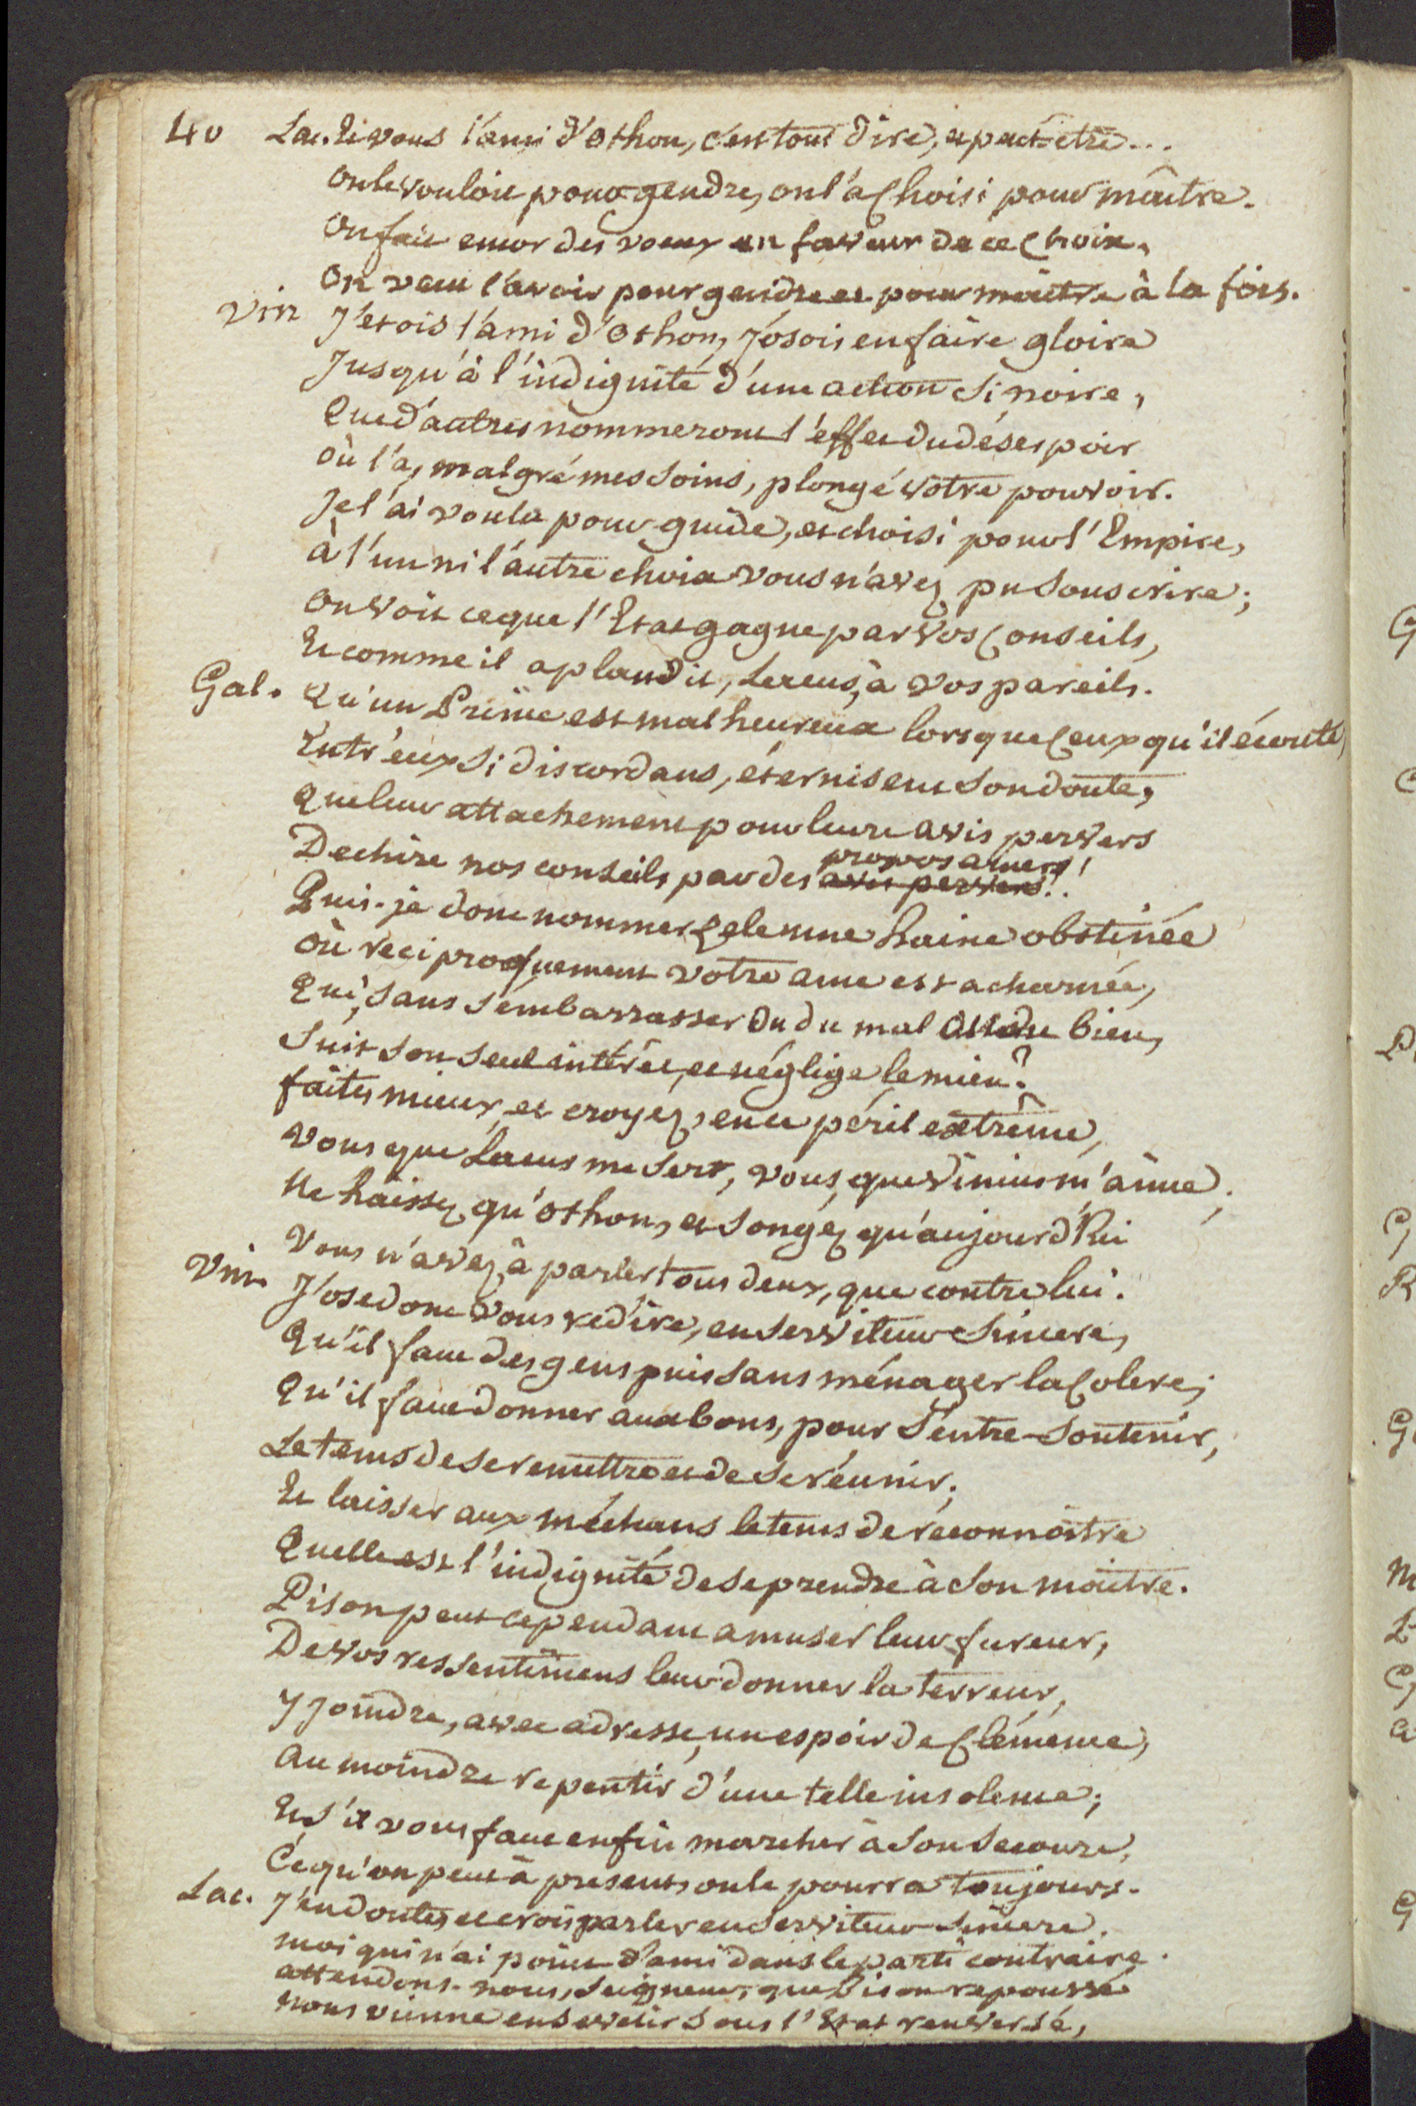 40 Lac. Et vous l'ami d'Othon, c'est tout dire, et peut-être...
On le vouloit pour gendre, on l'a choisi pour maître.
On fait encor des voeux en faveur de ce choix,
On veut l'avoir pour gendre et pour maitre à la fois.
Vin J'étois l'ami d'Othon, j'ósois en faire gloire
Jusqu'à l'indignité d'une action si noire,
Que d'autres nommeront l'effet du désespoir
où l'a, malgré mes soins, plongé votre pouvoir.
Je l'ai voulu pour guide, et choisi pour l'Empire,
à l'un ni l'autre choix vous n'avez pu souscrire;
On voit ce que l'Etat gagne par vos Conseils,
Et comme il aplaudit, Lacus, à vos pareils.
Gal. Qu'un Prince est malheureux lorsque Ceux qu'il écoute,
Entr'eux si discordans, éternisent son doute,
Que leur attachement pour leurs avis pervers
propos amers!
Dechire nos conseils par des avis pervers!
Puis-je donc nommer Zele une haine obstinée
où reciproquement votre ame est acharnée,
Qui, sans s'embarrasser ou du mal ou du bien,
Suit son seul intérêt, et néglige le mien?
faites mieux, et croyez, en ce péril extrême,
Vous que Lacus me sert, vous, que Vinius m'aime;
Ne haïssez qu'Othon, et songéz qu'aujourd'hui
Vous n'avez à parler tous deux, que contre lui.
Vin. J'ose donc vous redire, en serviteur sincere,
Qu'il faut des gens puissans ménager la Colere;
Qu'il faut donner aux bons, pour s'entre-soutenir,
Le tems de se remettre et de se réunir;
Et laisser aux méchans le tems de reconnoitre
Quelle est l'indignité de se prendre à son maître.
Pison peut cependant amuser leur fureur,
De vos ressentimens leur donner la terreur,
Y joindre, avec adresse, un espoir de Clémence,
au moindre repentir d'une telle insolence;
Et s'il vous faut enfin marcher à son secours,
Ce qu'on peut à present, on le pourra toujours.
Lac. J'en doute, et crois parler en serviteur sincere,
moi qui n'ai point d'ami dans le parti contraire.
attendons-nous, Seigneur, que Pison repoussé
nous vienne ensevelir sous l'Etat renversé,